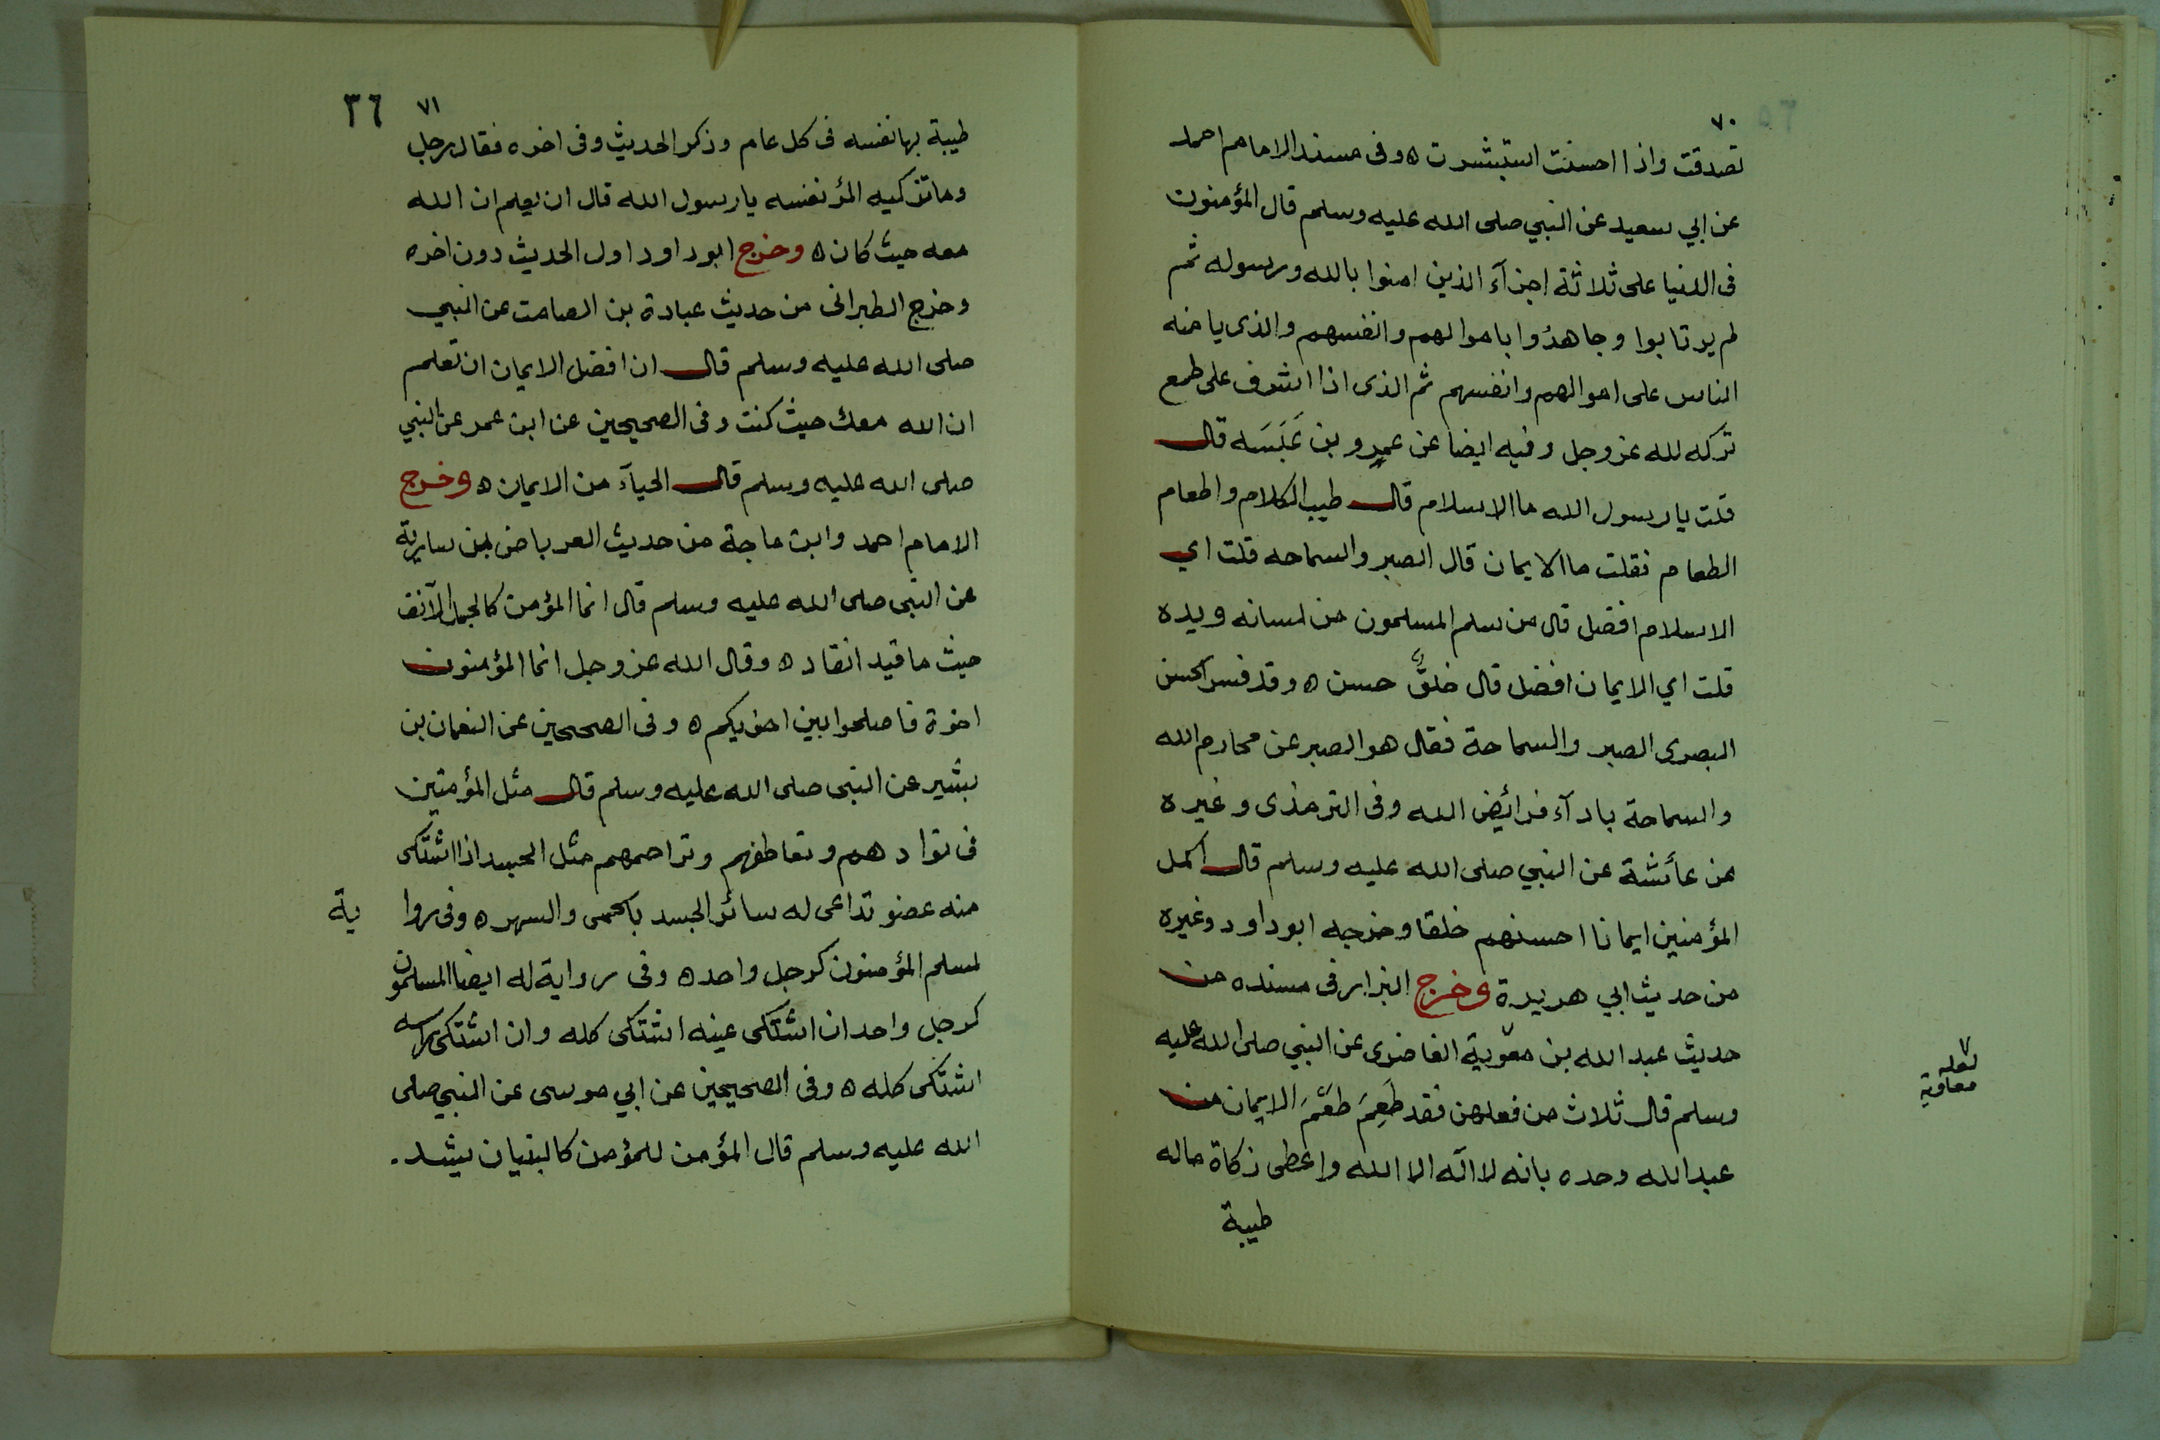 ٧٠
تصدقت واذا احسنت استبشرت ه وفى مسند الامام احمد
عن ابي سعيد عن النبي صلى الله عليه وسلم قال المؤمنون
فى الدنيا على ثلاثة اجزآء الذين امنوا بالله ورسوله ثم
لم يرتابوا وجاهدوا باموالهم وانفسهم والذى يامنه
الناس على اموالهم وانفسهم ثم الذى اذا اشرف على طمع
تركه لله عز وجل وفيه ايضا عن عمرو بن عَبَسَه قال
قلت يا رسول الله ما الاسلام قال طيب الكلام واطعام
الطعام فقلت ما الايمان قال الصبر والسماحه قلت اي
الاسلام افضل قال من سلم المسلمون من لسانه ويده
قلت اي الايمان افضل قال خلقٌ حسن ه وقد فسر الحسن
البصرى الصبر والسماحة فقال هو الصبر عن محارم الله
والسماحة بادآء فرائيض الله وفى الترمذى وغيره
عن عائشة عن النبي صلى الله عليه وسلم قال اكمل
المؤمنين ايمانا احسنهم خلقا وخرجه ابو داود وغيره
من حديث ابي هريرة وخرج البزار فى مسنده من
حديث عبد الله بن معٰوية الغاضرى عن النبي صلى الله عليه
لعله
معاوية
وسلم قال ثلاث من فعلهن فقد طَعِمَ طعْمَ الايمان من
عبد الله وحده بانه لا اله الا الله واعطى زكاة ماله
طيبة
٧١
٣٦
طيبة بها نفسه فى كل عام وذكر الحديث وفى اخره فقال رجل
وما تزكيه المرؤ نفسه يا رسول الله قال ان يعلم ان الله
معه حيث كان ه وخرج ابو داود اول الحديث دون اخره
وخرج الطبرانى من حديث عبادة بن الصامت عن النبي
صلى الله عليه وسلم قال ان افضل الايمان ان تعلم
ان الله معك حيث كنت وفى الصحيحين عن ابن عمر عن النبي
صلى الله عليه وسلم قال الحيآء من الايمان ه وخرج
الامام احمد وابن ماجة من حديث العرباض بن سارية
عن النبى صلى الله عليه وسلم قال انما المؤمن كالجمل الآنف
حيث ما قيد انقاد ه وقال الله عز وجل انما المؤمنون
اخوة فاصلحوا بين اخويكم ه وفى الصحيحين عن النعمان بن
بشير عن النبى صلى الله عليه وسلم قال مثل المؤمنين
فى توادهم وتعاطفهم وتراحمهم مثل الجسد اذا اشتكى
منه عضو تداعى له سائر الجسد بالحمى والسهر ه وفى رواية
لمسلم المؤمنون كرجل واحد ه وفى رواية له ايضا المسلمون
كرجل واحد ان اشتكى عينه اشتكى كله وان اشتكى راسه
اشتكى كله ه وفى الصحيحين عن ابي موسى عن النبي صلى
الله عليه وسلم قال المؤمن للمؤمن كالبنيان يشد.